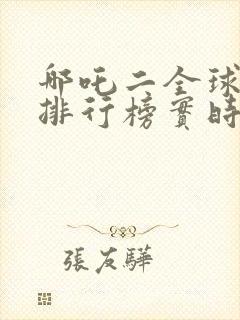 哪吒二全球
排行榜實時
張友驊